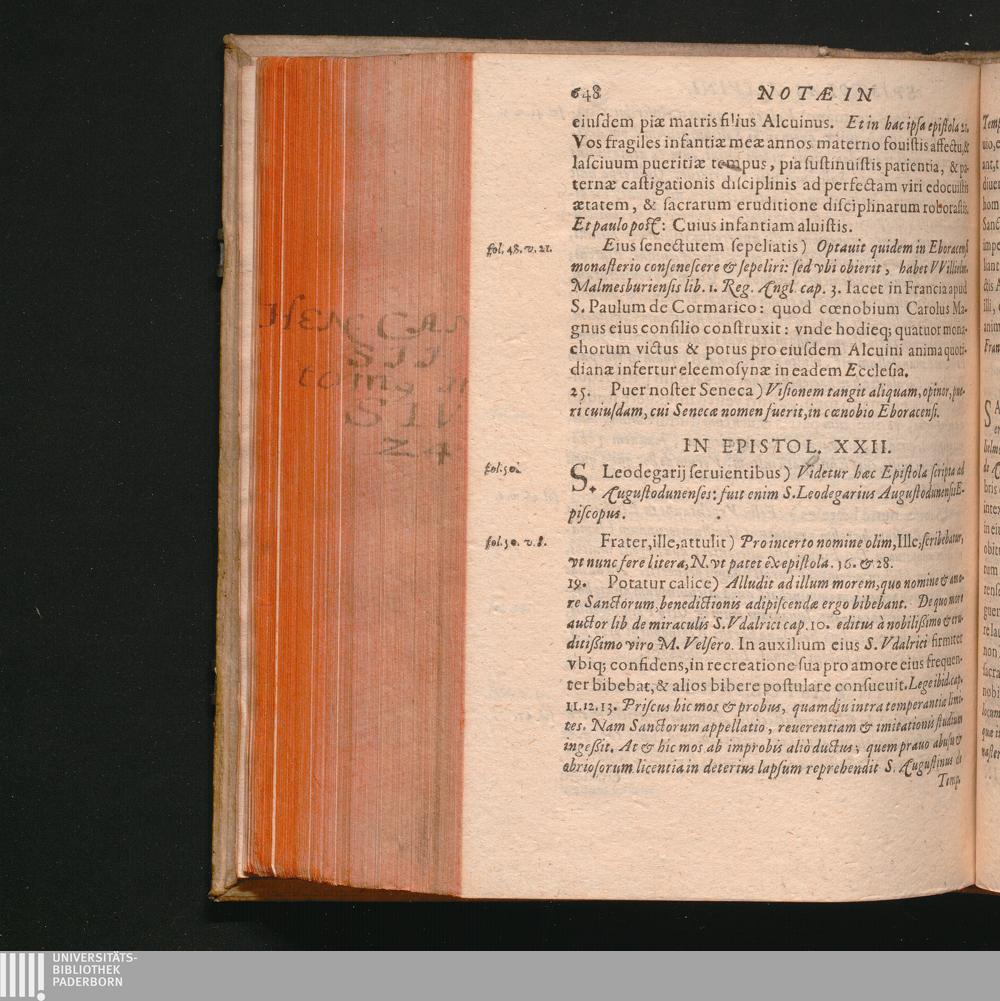 648 NOTÆ IN
eiuſdem piæ matris filius Alcuinus. Et in hac ipſa epiſtola 21.
Vos fragiles infantiæ meæ annos materno fouiſtis affectu, &
laſciuum pueritiæ tempus, pia ſuſtinuiſtis patientia, & pa-
ternæ caſtigationis diſciplinis ad perfectam viri edocuiſtis
ætatem, & ſacrarum eruditione diſciplinarum roboraſtis.
Et paulo poſt: Cuius infantiam aluiſtis.
fol. 48. v. 21.
Eius ſenectutem ſepeliatis) Optauit quidem in Eboracenſi
monaſterio conſeneſcere & ſepeliri: ſed vbi obierit, habet VVilielm.
Malmesburienſis lib. 1. Reg. Angl. cap. 3. Iacet in Francia apud
S. Paulum de Cormarico: quod cœnobium Carolus Ma-
gnus eius conſilio conſtruxit: vnde hodieq; quatuor mona-
chorum victus & potus pro eiuſdem Alcuini anima quoti-
dianæ infertur eleemoſynæ in eadem Eccleſia.
25. Puer noſter Seneca) Viſionem tangit aliquam, opinor, pue-
ri cuiuſdam, cui Senecæ nomen fuerit, in cœnobio Eboracenſi.
IN EPISTOL. XXII.
fol. 50.
S. Leodegarij ſeruientibus) Videtur hæc Epiſtola ſcripta ad
Auguſtodunenſes: fuit enim S. Leodegarius Auguſtodunenſis E-
piſcopus.
fol. 50. v. 8.
Frater, ille, attulit) Pro incerto nomine olim, Ille, ſcribebatur,
vt nunc fere litera, N. vt patet ex epiſtola. 16. & 28.
19. Potatur calice) Alludit ad illum morem, quo nomine & amo-
re Sanctorum, benedictionis adipiſcendæ ergo bibebant. De quo more
auctor lib de miraculis S. Vdalrici cap. 10. editus à nobiliſſimo & eru-
ditiſſimo viro M. Velſero. In auxilium eius S. Vdalrici firmiter
vbiq; confidens, in recreatione ſua pro amore eius frequen-
ter bibebat, & alios bibere poſtulare conſueuit. Lege ibid. cap.
11. 12. 13. Priſcus hic mos & probus, quamdiu intra temperantiæ limi-
tes. Nam Sanctorum appellatio, reuerentiam & imitationis ſtudium
ingeſſit. At & hic mos ab improbis aliò ductus; quem prauo abuſu &
ebrioſorum licentia in deterius lapſum reprehendit S. Auguſtinus de
Temp.
UNIVERSITÄTS-
BIBLIOTHEK
PADERBORN